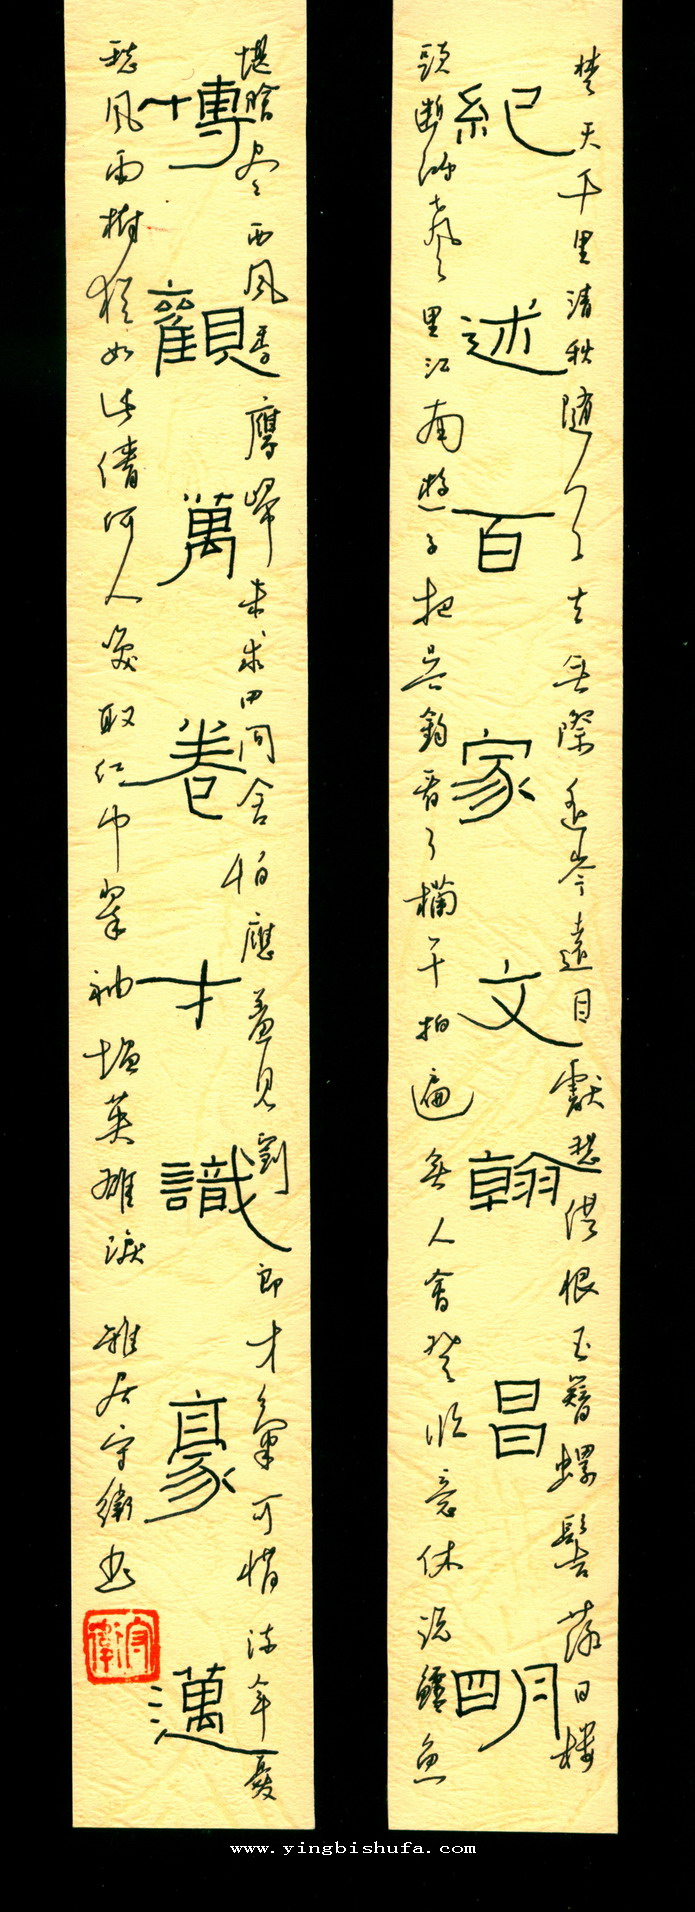 紀述百家文翰昌明
楚天千里清秋隨去無際遥岑遠目獻愁供恨玉簪螺髻落日樓
頭斷鴻聲里江南遊子把吳鈎看了欄干拍遍無人會登臨意休説鱸魚
博觀萬卷才識豪邁
堪膾尽西風季鷹歸未求田問舍怕應羞見劉郎才氣可惜流年憂
愁風雨樹猶如此倩何人喚取紅巾翠袖揾英雄淚 雅居守衛書
守衛
www.yingbishufa.com